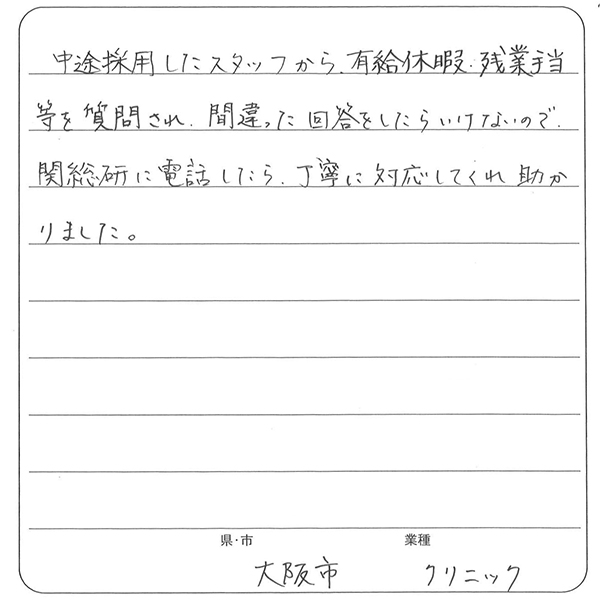 中途採用したスタッフから、有給休暇・残業手当
等を質問され、間違った回答をしたらいけないので、
関総研に電話したら、丁寧に対応してくれ助か
りました。
県・市 業種
大阪市 クリニック